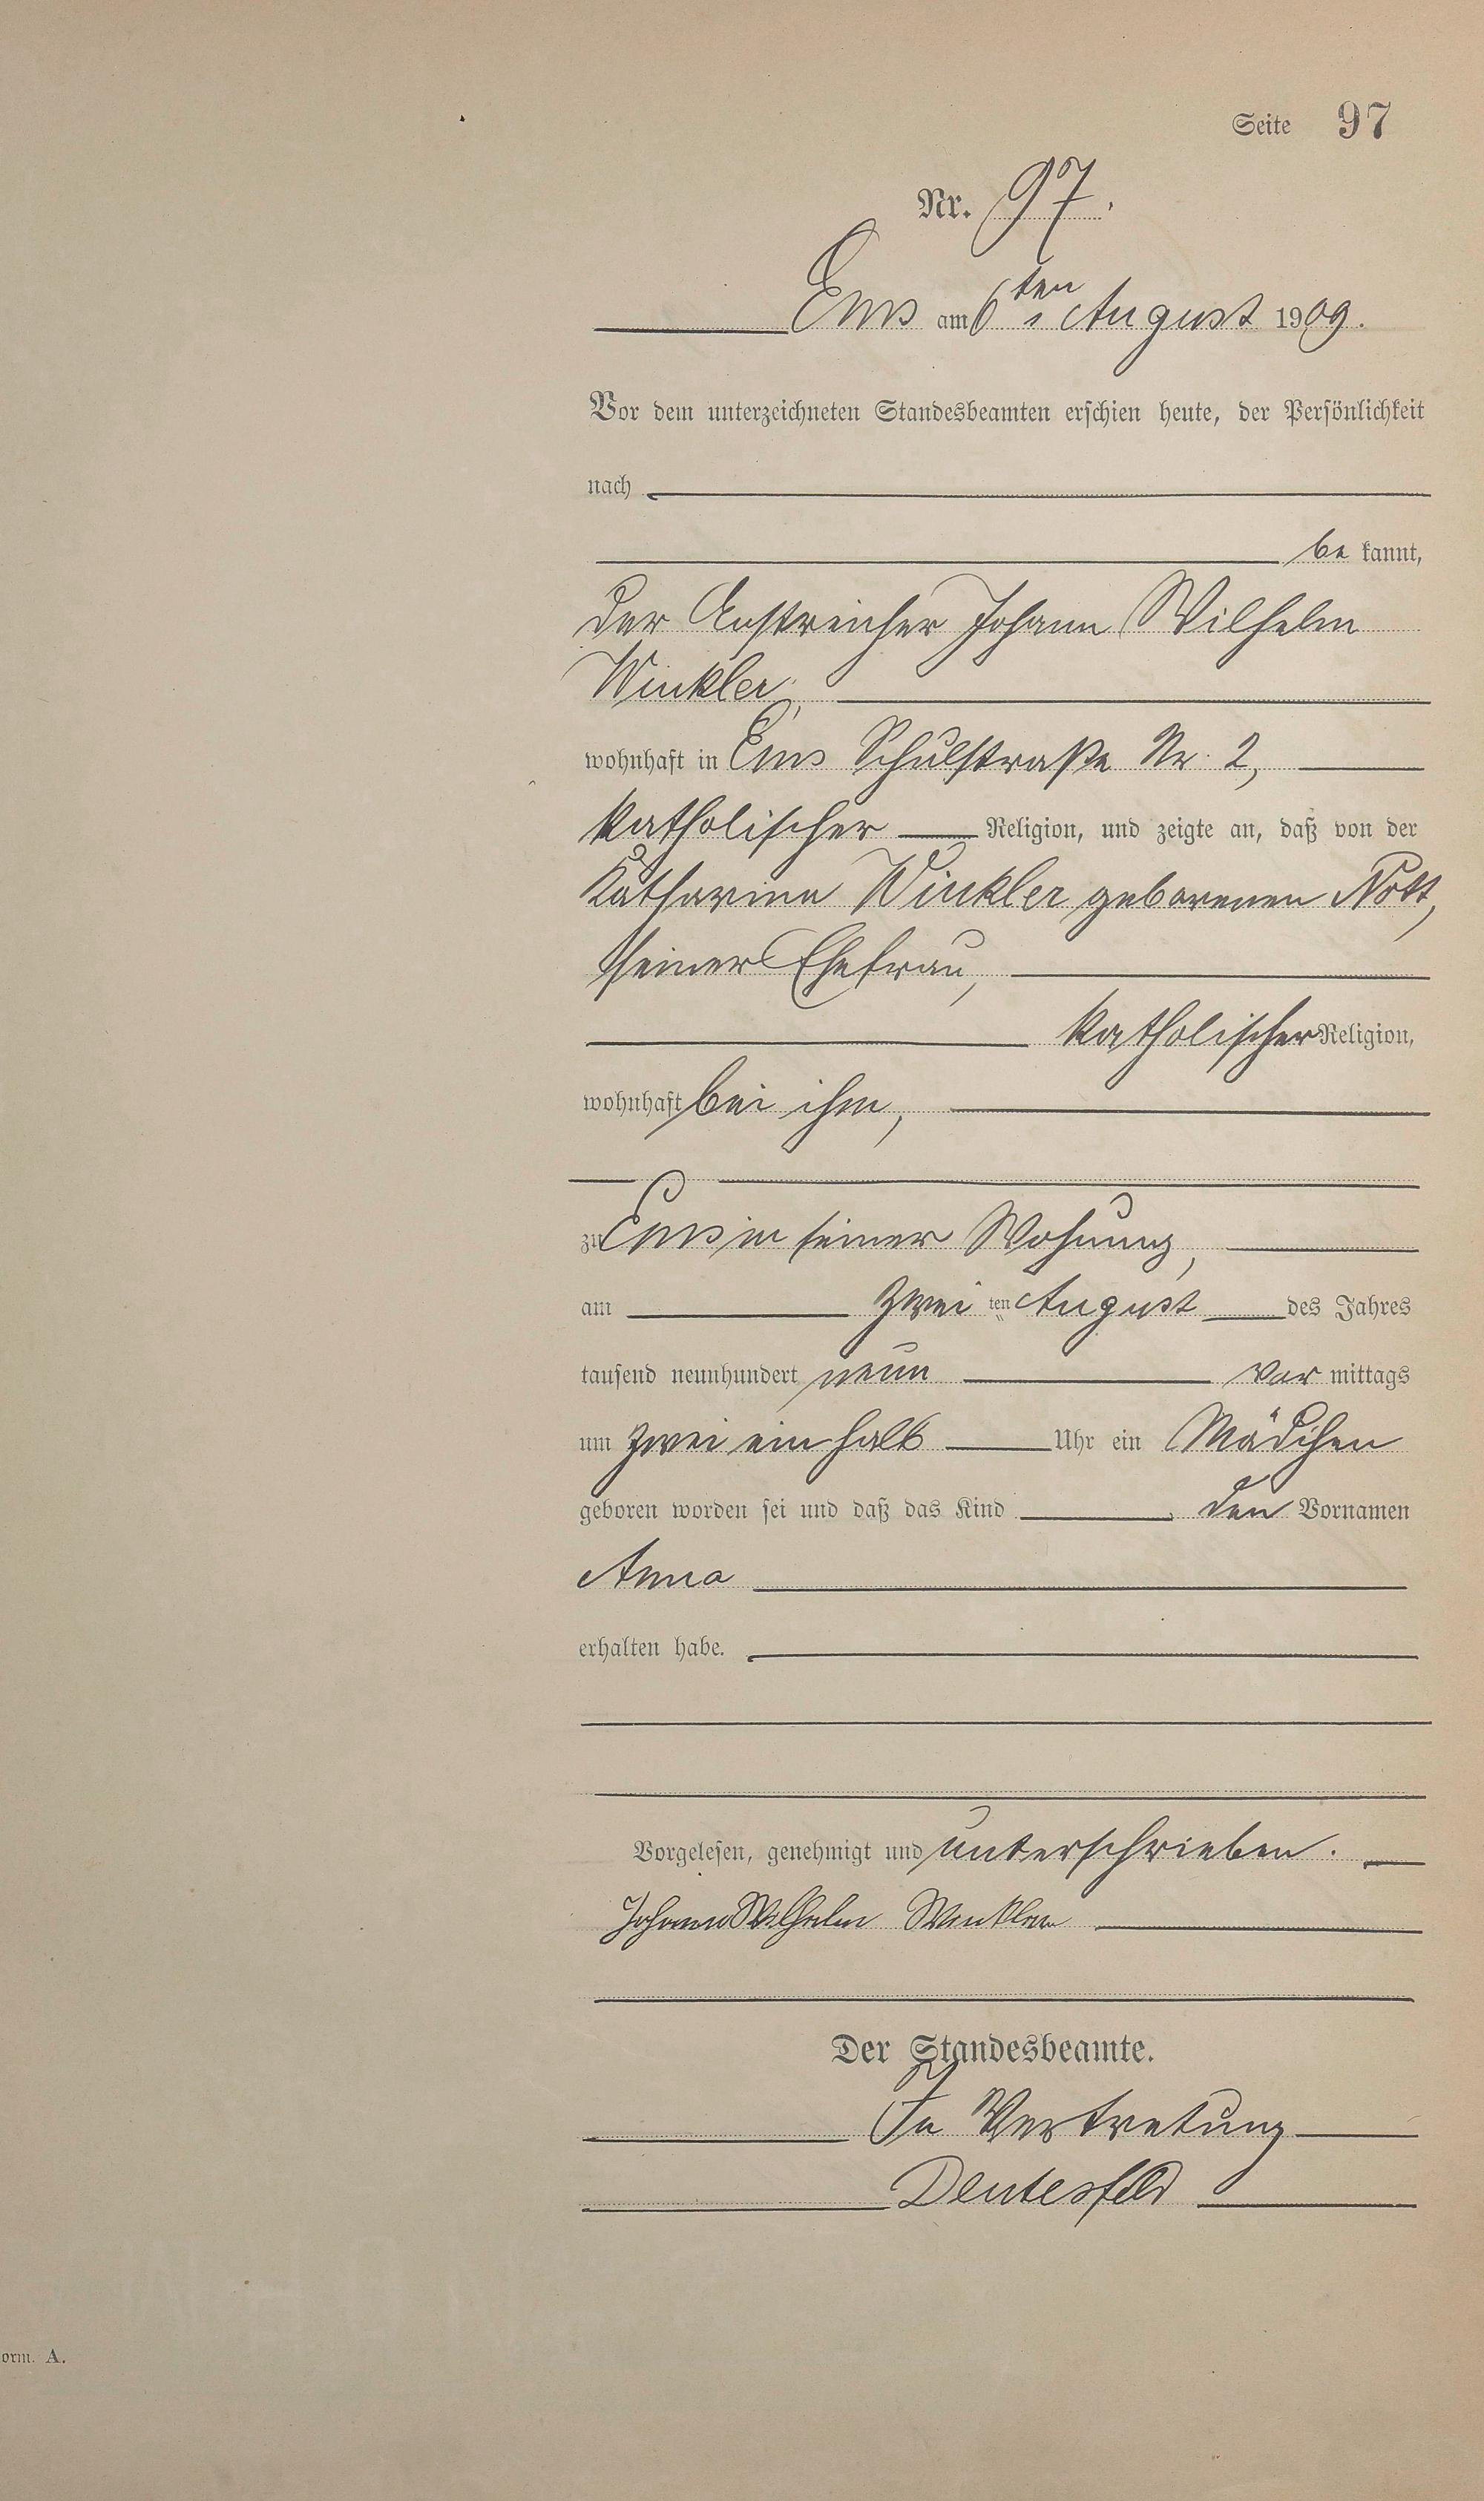 Seite 97
Nr. 97.
Ems am 6ten August 1909.
Vor dem unterzeichneten Standesbeamten erschien heute, der Persönlichkeit
nach
be kannt,
der Anstreicher Johann Wilhelm
Winkler,
wohnhaft in Ems Schulstraße Nr. 2,
katholischer Religion, und zeigte an, daß von der
Katharina Winkler geborenen Nott,
seiner Ehefrau,
katholischer Religion,
wohnhaft bei ihm,
zu Ems in seiner Wohnung,
am zwei ten August des Jahres
tausend neunhundert neun vor mittags
um zwei ein halb Uhr ein Mädchen
geboren worden sei und daß das Kind den Vornamen
Anna
erhalten habe.
Vorgelesen, genehmigt und unterschrieben.
Johann Wilhelm Winkler
Der Standesbeamte.
In Vertretung
orm. A.